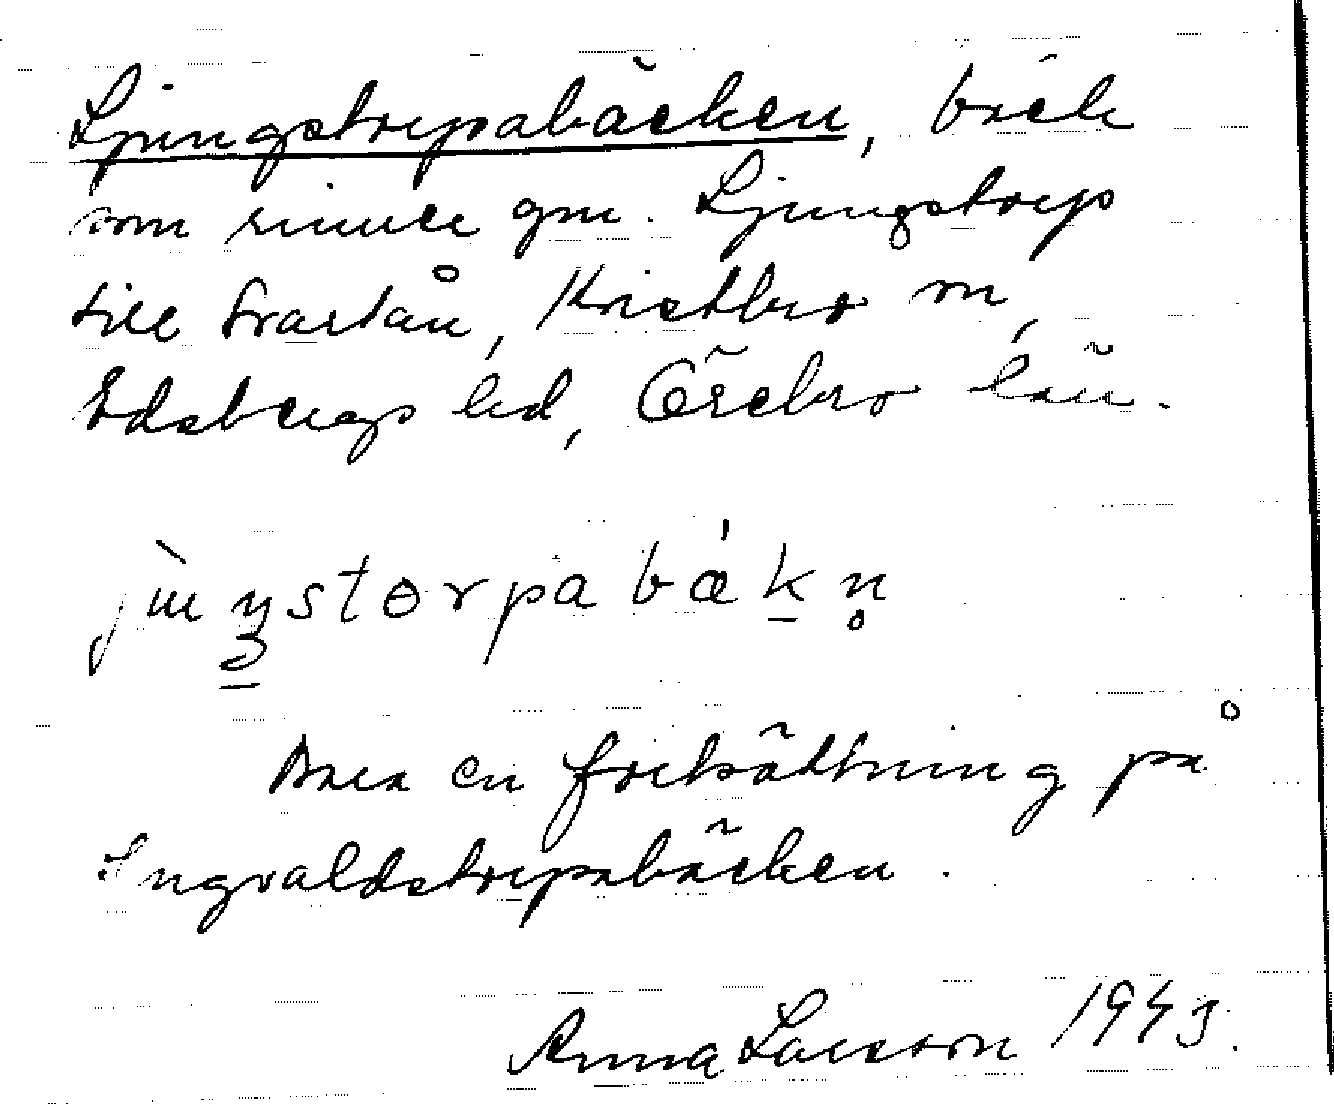 Ljungstorpabäcken, bäck
som rinner gm. Ljungstorp
till Svartån, Kvistbro sn,
Edsbergs hd, Örebro län.
Bara en fortsättning på
Ingvaldstorpabäcken.
Anna Larsson 1943.